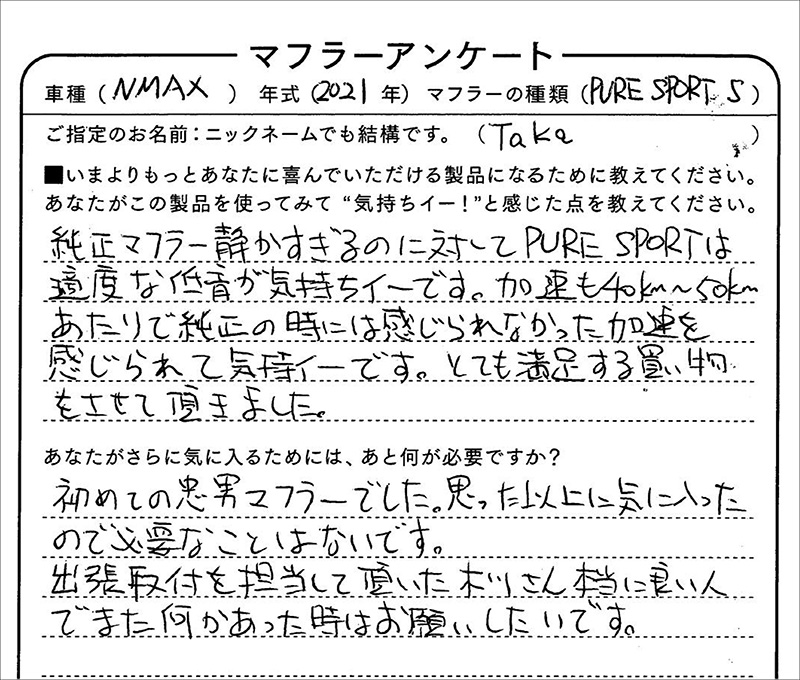 マフラーアンケート
車種(NMAX) 年式(2021年) マフラーの種類(PURE SPORT S)
ご指定のお名前:ニックネームでも結構です。(Taka)
■いまよりもっとあなたに喜んでいただける製品になるために教えてください。
あなたがこの製品を使ってみて“気持ちイー!”と感じた点を教えてください。
純正マフラー静かすぎるのに対してPURE SPORTは
適度な低音が気持ちイーです。加速も40km~50km
あたりで純正の時には感じられなかった加速を
感じられて気持イーです。とても満足する買い物
をさせて頂きました。
あなたがさらに気に入るためには、あと何が必要ですか?
初めての忠男マフラーでした。思った以上に気に入った
ので必要なことはないです。
出張取付を担当して頂いた木川さん本当に良い人
でまた何かあった時はお願いしたいです。